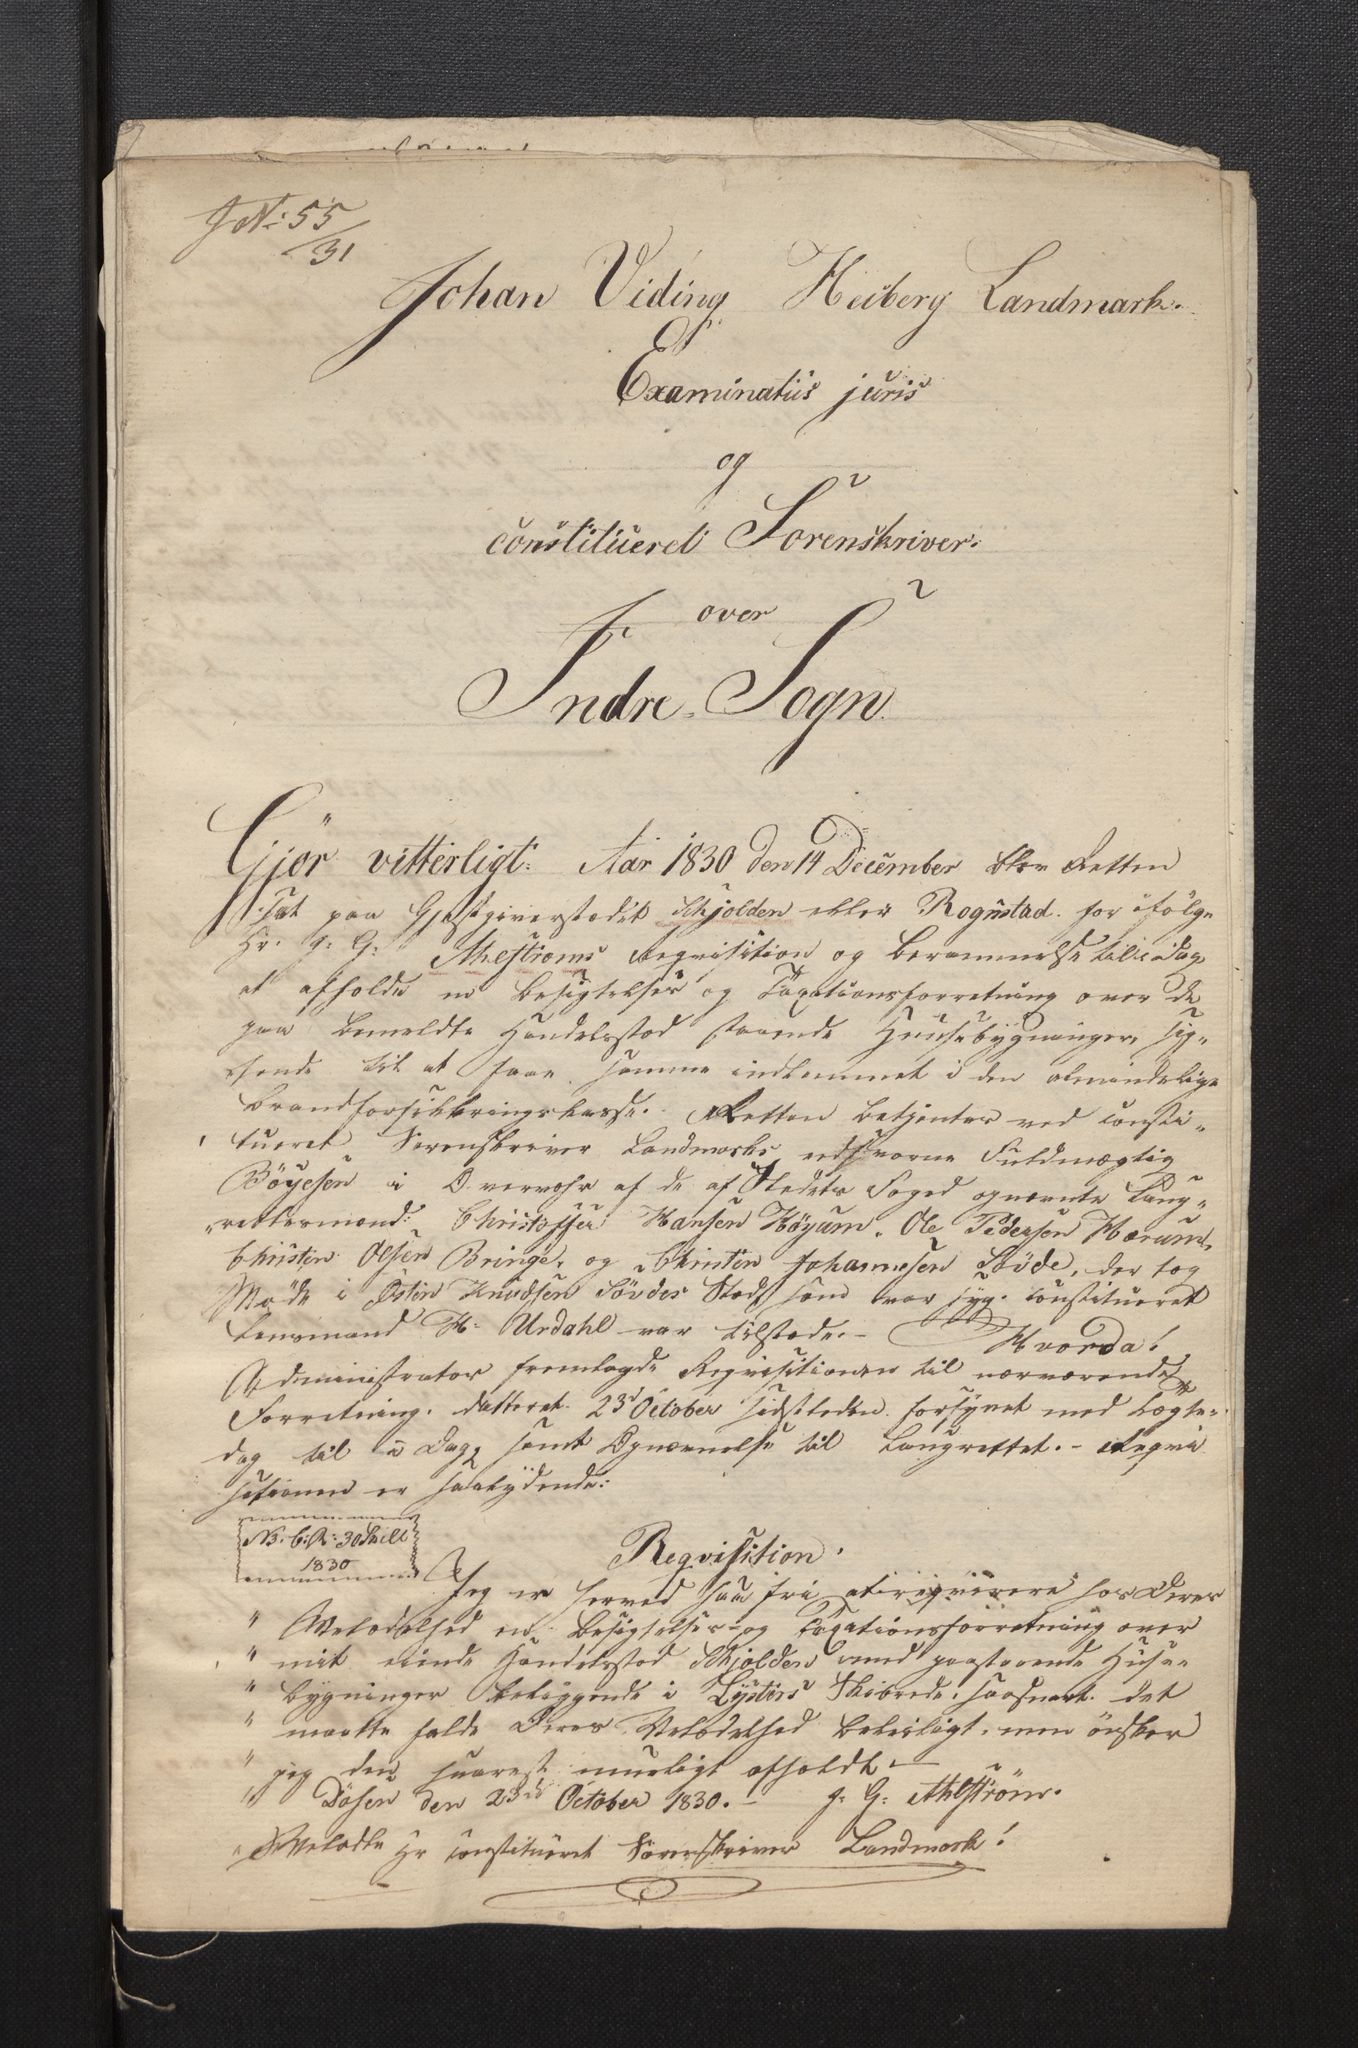 J No: 55/31
Johan Viding Heiberg Landmark.
Examinatus juris
og
constitueret Sorenskriver.
over
Indre-Sogn.
Gjör vitterligt: Aar 1830 den 14 December blev Retten
sat paa Gjestgiverstedet Skjolden eller Rognstad. for ifölge
Hr. J: G: Ahlströms Reqvisition og Berammelse til i dag
at afholde en Besigtelses og Taxationsforretning over de
paa bemeldte Handelsstad staaende Huusebygninger, sig-
tende til at faae samme indlemmet i den almindelige
Brandforsikkringskasse. Retten betjentes ved consti-
tueret Sorenskriver Landmarks edsvorne Fuldmægtig
Böyesen i Overværk af de af Stedets Foged opnævnte Laug-
rettesmænd: Christoffer Hansen Höyum, Ole Pedersen Morum,
Christen Olsen Bringe, og Christen Johannesen Sövde, der tog
Möde i Østen Knudsen Sövdes Sted, som var syg. Constitueret
Lensmand H. Urdahl var tilstede.— Hvorda!
Administrator fremlagde Reqvisitionen til nærværende
Forretning. datteret 23d October sidstleden. forsynet med Tægte-
dag til i Dag, samt Opnævnelse til Laugrettet.— Reqvi
sitionen er saalydende:
No. 6. R: 30 Skill
1830
Reqvisition.
Jeg er herved saa fri at reqvirere hos Deres
" Velædelhed en Besigtelses- og Taxationsforretning over
" mit eiende Handelsstad Skjolden med paastaaende Huse-
" bygninger beliggende i Lysters Skibrede, saasnart det
" maatte falde Deres Velædelhed beleiligt, men önsker
" jeg den snarest mueligt afholdt.—
" Dösen den 23de October 1830.— J: G: Ahlström.
" Velædle Hr constitueret Sörenskriver Landmark!